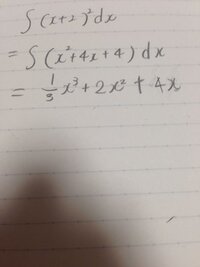 ∫(x+2)²dx
= ∫(x²+4x+4)dx
= 1/3 x³+2x²+4x